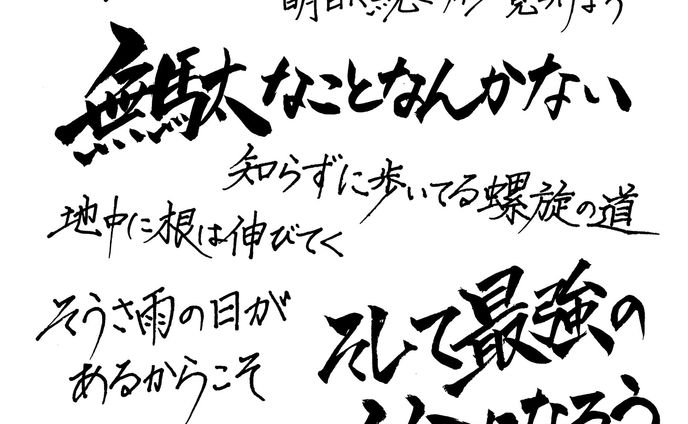 無駄なことなんかない
知らずに歩いてる螺旋の道
地中に根は伸びてく
そうさ雨の日が
あるからこそ
そして最強の
になろう